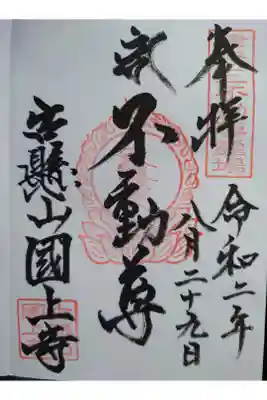 奉拝
令和二年
八月二十九日
不動尊
古懸山國上寺